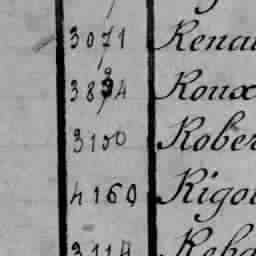 3071 Renau
3834 Roux
3100 Rober
4160 Rigo
3114 Reba